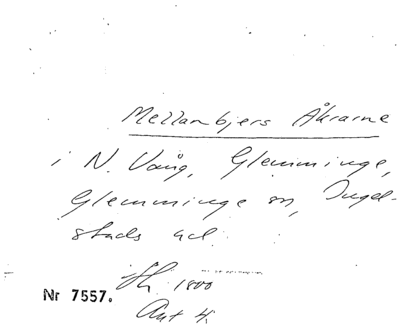 Mellanbjers Åkrarne
i N. Vång, Glemminge,
Glemminge sn, Ingel-
stads hd.
Sk. 1800
Nr 7557.
Akt 4.